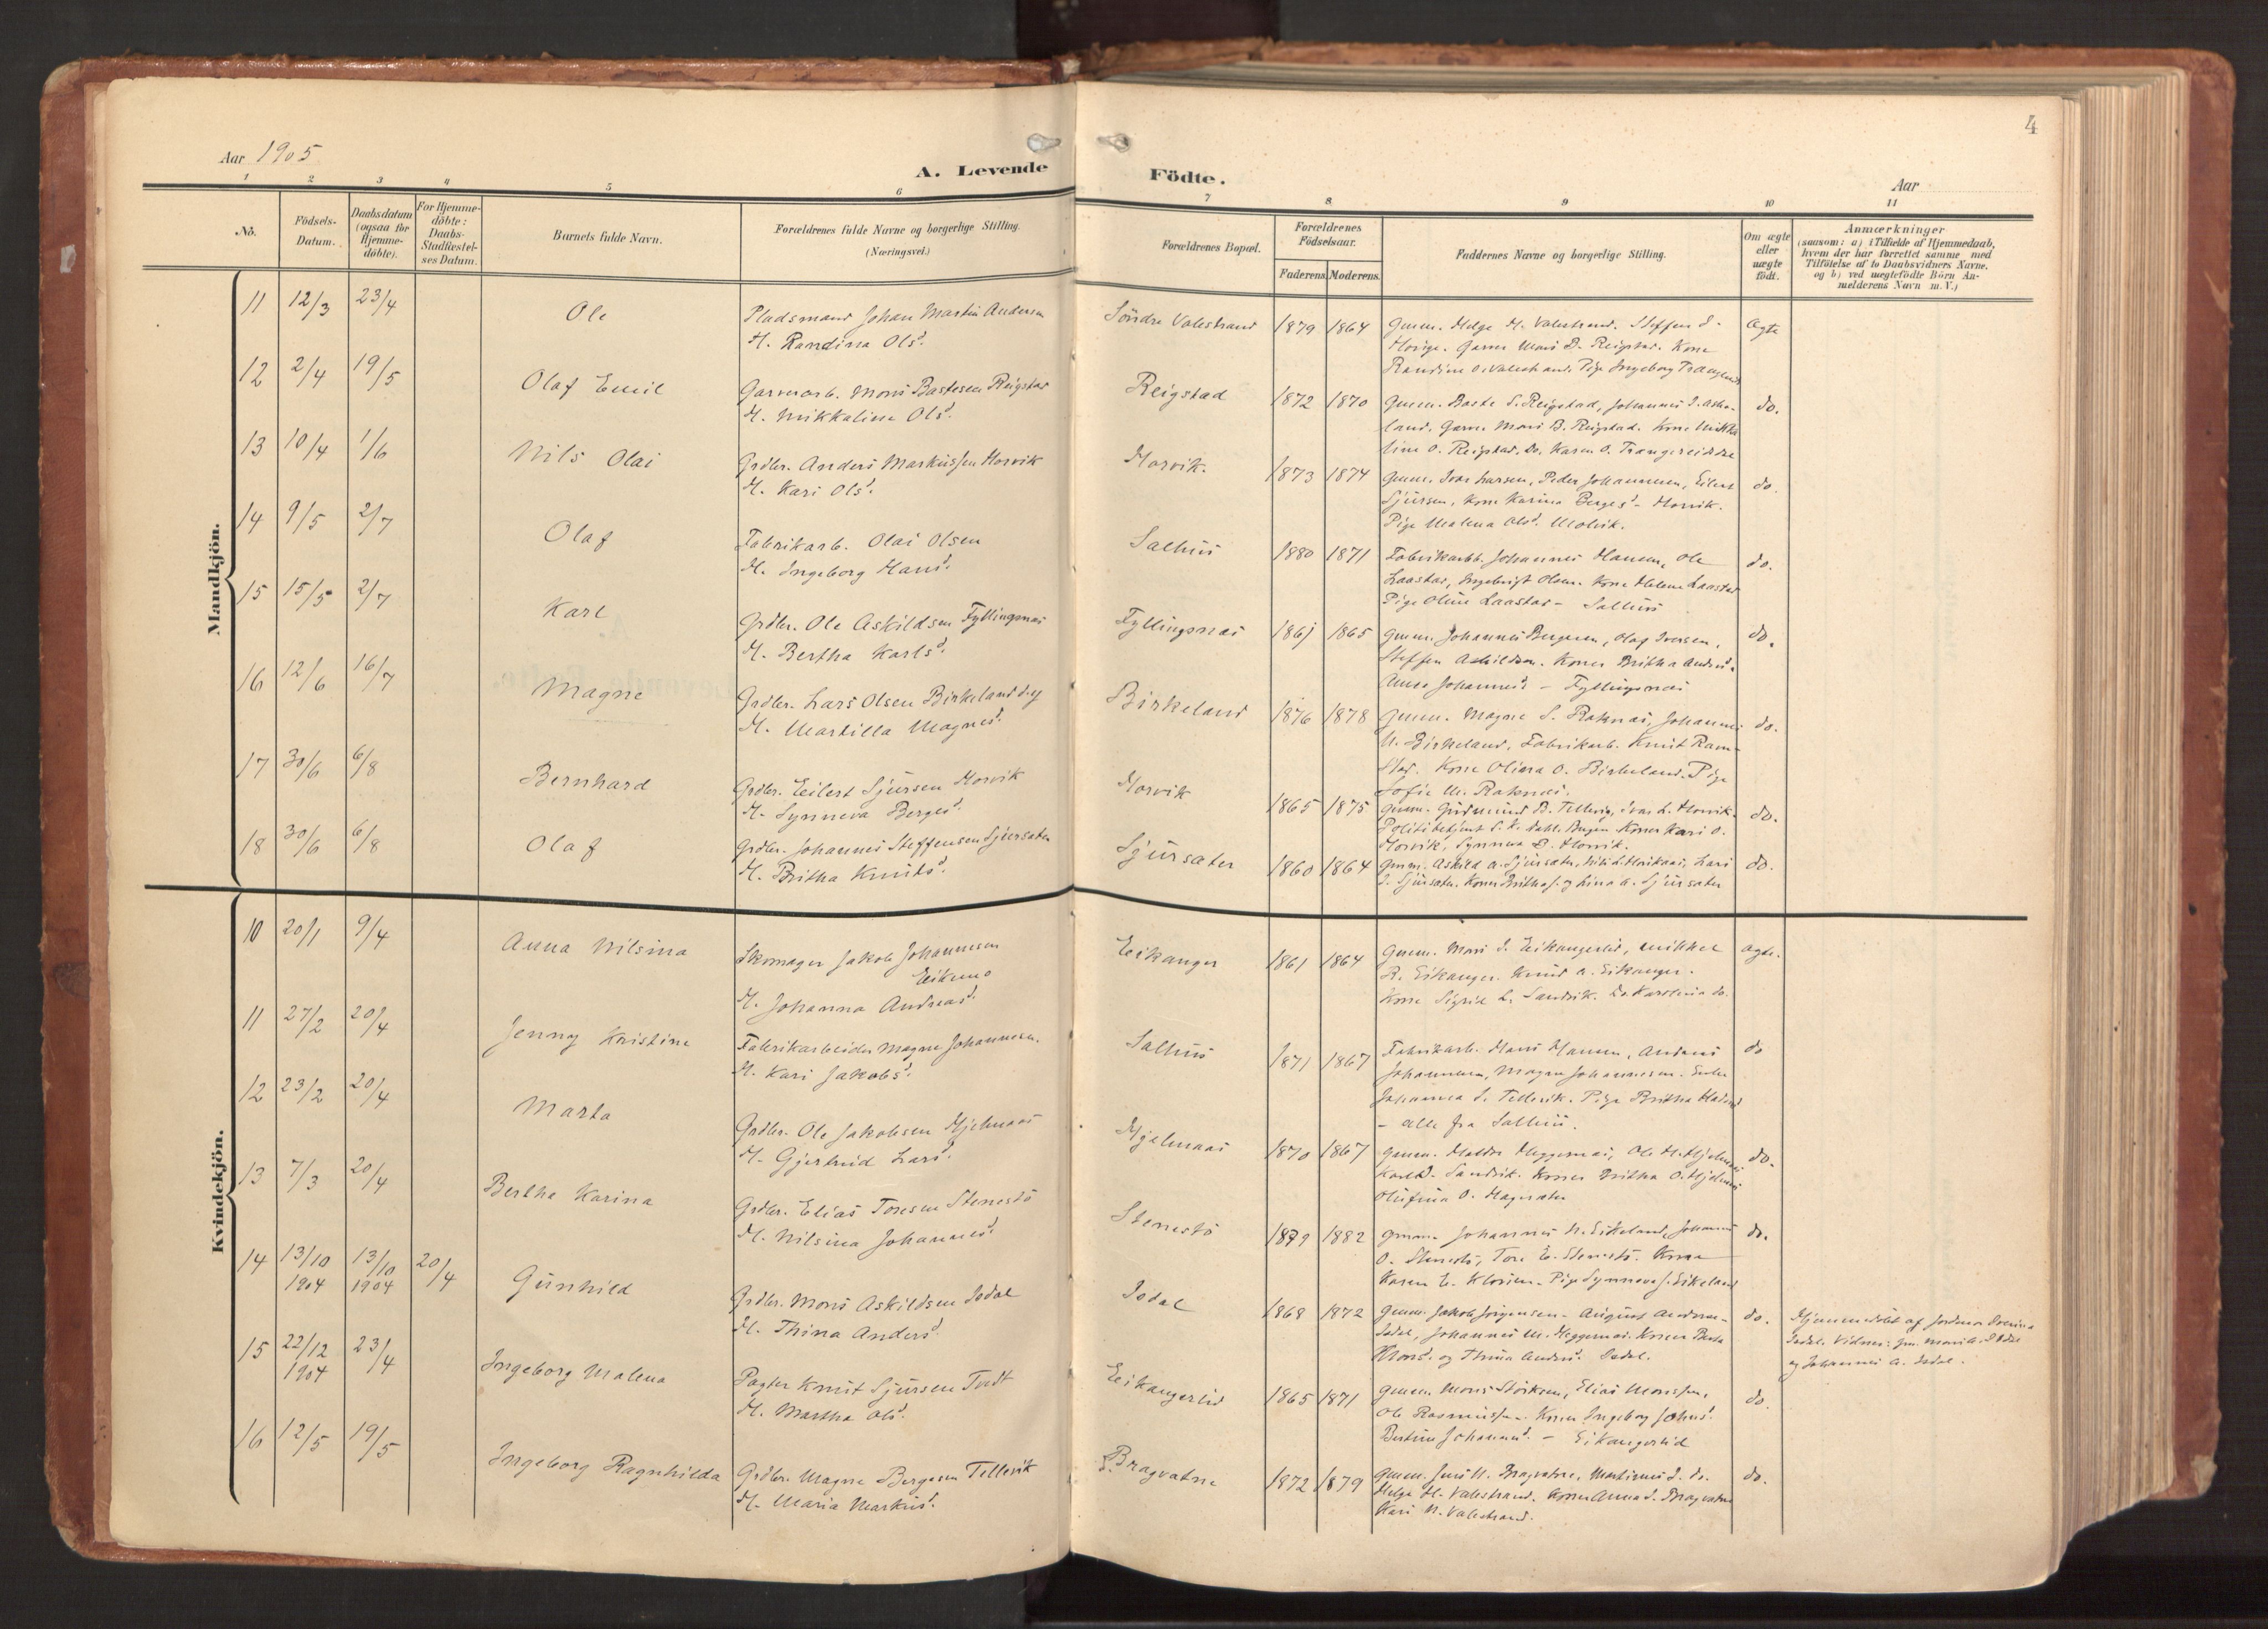 4
Aar 1905
A. Levende
Födte.
Aar
1 2 3 4 5 6 7 8 9 10 11
No.
Födsels-
Datum.
Daabsdatum
(ogsaa for
Hjemme-
döbte).
For Hjemme-
döbte:
Daabs-
Stadfæstel-
ses Datum.
Barnets fulde Navn.
Forældrenes fulde Navne og borgerlige Stilling.
(Næringsvei.)
Forældrenes Bopæl.
Forældrenes
Födselsaar.
Faderens. Moderens.
Faddernes Navne og borgerlige Stilling.
Om ægte
eller
uægte
födt.
Anmærkninger
(saasom: a) i Tilfælde af Hjemmedaab,
hvem der har forrettet samme med
Tilföielse af to Daabsvidners Navne,
og b) ved uægtefödte Börn An-
melderens Navn m. V.)
Mandkjön.
11 12/3 23/4 Ole
Pladsmand Johan Martin Andersen
H. Randina Olsd.
Söndre Valestrand 1879 1864
Gmm. Helge M. Valestrand. Steffen
Garver Mons B. Reigstad. Kone
Randine O. Valestrand. Pige Ingeborg
Ægte
12 2/4 19/5 Olaf Emil
Garverarb. Mons Bastesen Reigstad
H. Mikkaline Olsd.
Reigstad 1872 1870
Gmm. Baste S. Reigstad, Johannes
land. Garver Mons B. Reigstad. Kone Mikka
line O. Reigstad. Do. Karen O.
do.
13 10/4 1/6 Nils Olai
Grdbr. Anders Markussen Horvik
H. Kari Olsd.
Horvik. 1873 1874
Gmm. Ivar Larsen, Peder Johannesen, Eilert
Sjursen, Kone Karina Bergesd. - Horvik.
Pige Malena Olsd.
do.
14 9/5 2/7 Olaf
Fabrikarb. Olai Olsen
H. Ingeborg Hansd.
Salhus 1880 1871
Fabrikarbb. Johannes Hansen, Ole
Laastad, Ingebrigt Olsen. Kone Helene Laastad
Pige Oline Laastad - Salhus
do.
15 15/5 2/7 Karl
Grdbr. Ole Askildsen Fyllingsnæs
H. Bertha Karlsd.
Fyllingsnæs 1865
Gmm. Johannes Bergesen, Olaf Iversen,
Steffen Askildsen. Koner Britha Andersd.
Anna Johannesd. - Fyllingsnæs
do.
16 12/6 16/7 Magne
Grdbr. Lars Olsen Birkeland
H. Martilla Magnesd.
Birkeland 1876 1878
Gmm. Magne S. Raknæs, Johannes
Birkeland, Fabrikarb. Knut Ram-
stad. Kone Olina O. Birkeland. Pige
Sofie M. Raknæs.
do.
17 30/6 6/8 Bernhard
Grdbr. Eilert Sjursen Horvik
H. Synneva Bergesd.
Horvik 1865 1875
Gmm. Gudmund B. Tellevig, Ivar L. Horvik
Politibetjent Dahl. Bergen Koner Kari O.
Horvik, Synneva B. Horvik.
do.
18 30/6 6/8 Olaf
Grdbr. Johannes Steffensen Sjursæter
H. Britha Knutsd.
Sjursæter 1860 1864
Gmm. Askild A. Sjursæter, Lars
J. Sjursæter. Koner Britha J. og Lina A. Sjursæter
do.
Kvindekjön.
10 20/1 9/4 Anna Nilsina
Skomager Jakob Johannesen
Eikemo
H. Johanna Andreasd.
Eikanger 1861 1864
Gmm. Mons J. Eikangerlid, Mikkel
R. Eikanger. Knud A. Eikanger.
Kone Sigrid L. Sandvik. Do. Karolina do.
ægte.
11 27/2 20/4 Jenny Kristine
Fabrikarbeider Magne Johannesen.
H. Kari Jakobsd.
Salhus 1871 1867
Fabrikarb. Hans Hansen, Anders
Johannesen, Magne Johannesen. Enke
Johanna S. Tellevik. Pige Britha
- alle fra Salhus.
do
12 23/2 20/4 Marta
Grdbr. Ole Jakobsen Hjelmaas
H. Gjertrud Larsd.
Hjelmaas 1870 1867
Gmm. Haldor Heggernæs, Ole H. Hjelmaas
Sandvik. Koner Britha O. Hjelmaas
Olufina O.
do.
13 7/3 20/4 Bertha Karina
Grdbr. Elias Toresen Stenestö
H. Nilsina Johannesd.
Stenestö 1879 1882
Gmm. Johannes N. Eikeland, Johannes
O. Stenestö, Tore E. Stenestö. Kone
Karen E. Pige Synneva J. Eikeland
do.
14 13/10 1904 13/10 1904 20/4 Gunhild
Grdbr. Mons Askildsen Isdal
H. Thina Andersd.
Isdal 1868 1872
Gmm. Jakob Jörgensen - August Andersen -
Isdal, Johannes M. Heggernæs. Koner Berta
Monsd. og Thina Andersd. Isdal.
do.
Hjemmedöbt af Jordmor
Isdal. Vidner: Gm. Mons A. Isdal
og Johannes A. Isdal.
15 22/12 1904 23/4 Ingeborg Malena
Pagter Knut Sjursen Tvedt
H. Martha Olsd.
Eikangerlid 1865 1871
Gmm. Mons Störksen, Elias Monssen,
Ole Rasmussen. Koner Ingeborg Johnsd.
Bertine Johannesd. - Eikangerlid
do.
16 12/5 19/5 Ingeborg Ragnhilda
Grdbr. Magne Bergesen Tellevik
H. Maria Markusd.
Bragvatne 1872 1879
Gmm. Jens N. Bragvatne, Martinus J. do.
Helge M. Valestrand. Koner Anna J. Bragvatne
Kari N. Valestrand.
do.